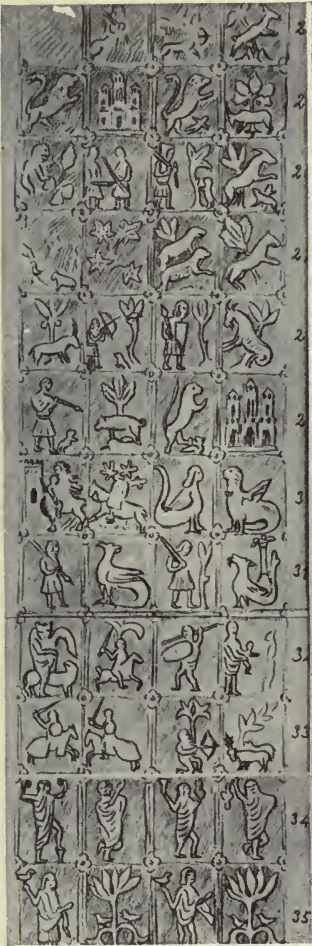 2
2
2
2
2
2
3
31
32
33
34
35